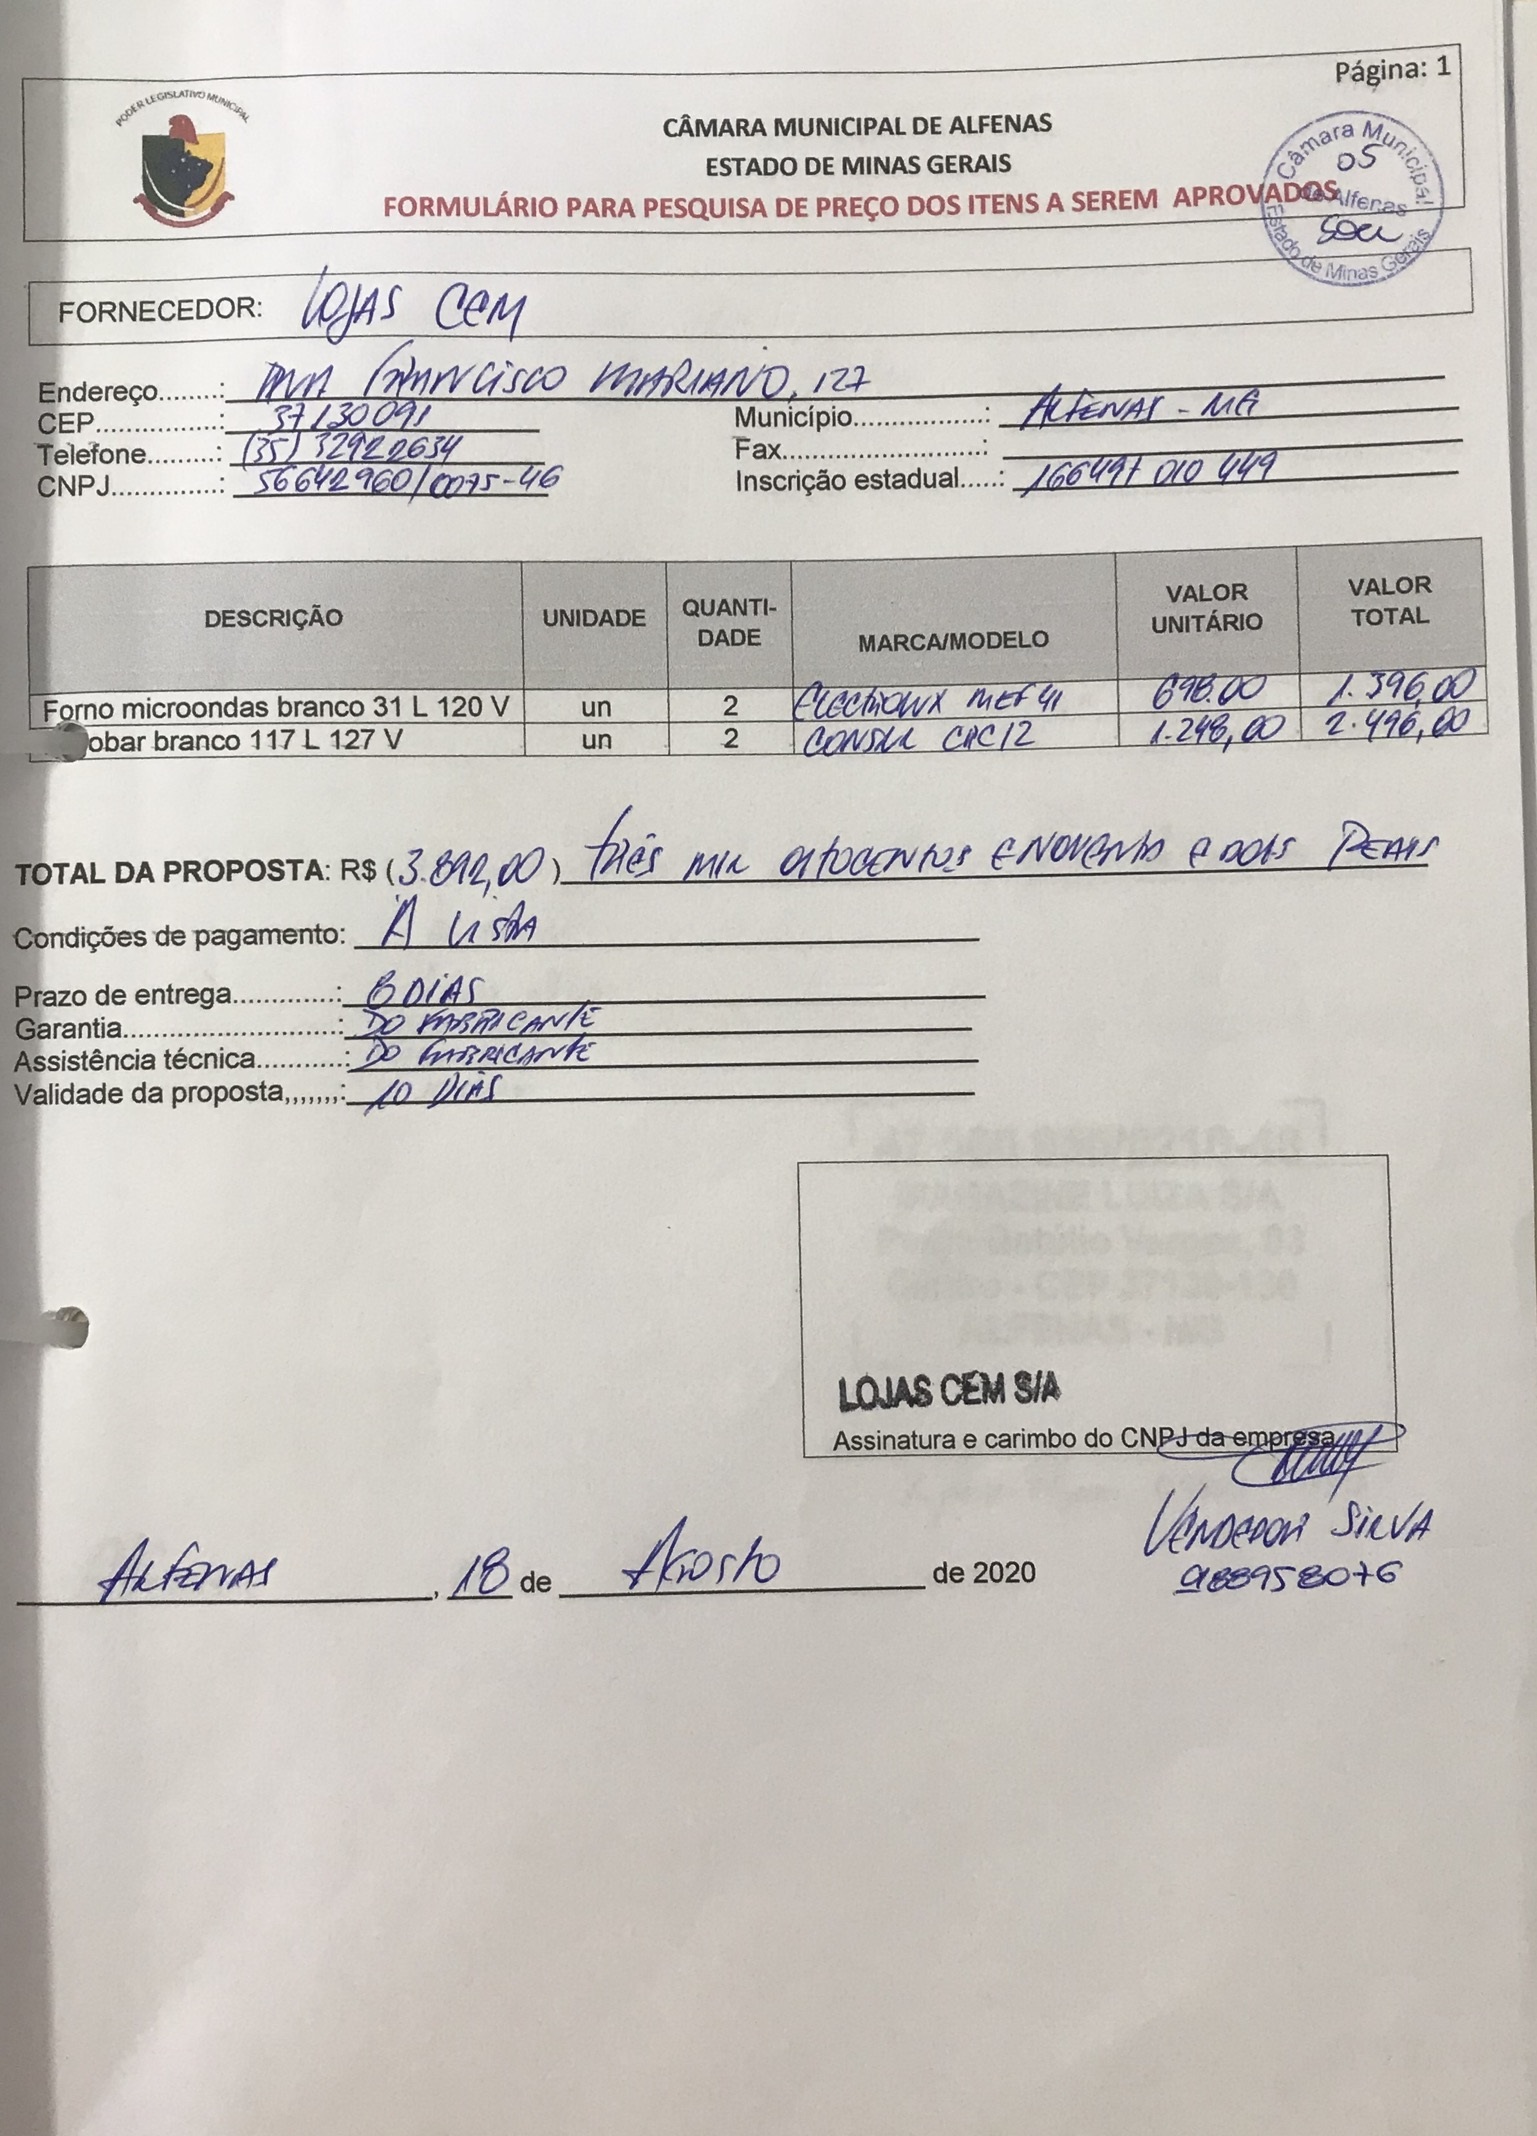 Página: 1
PODER LEGISLATIVO MUNICIPAL
CÂMARA MUNICIPAL DE ALFENAS
ESTADO DE MINAS GERAIS
FORMULÁRIO PARA PESQUISA DE PREÇO DOS ITENS A SEREM APROVADOS
Câmara Municipal
05
de Alfenas
Estado de Minas Gerais
FORNECEDOR: LOJAS CEM
Endereço........: FRANCISCO MARIANO, 127
CEP................: 37130091 Município..................: ALFENAS - MG
Telefone.........: (35) 32922634 Fax............................:
CNPJ..............: 56642960/0075-46 Inscrição estadual.....: 166497 010 449
DESCRIÇÃO UNIDADE QUANTI-DADE MARCA/MODELO VALOR UNITÁRIO VALOR TOTAL
Forno microondas branco 31 L 120 V un 2 ELECTROLUX MEF41 698.00 1.396,00
obar branco 117 L 127 V un 2 CONSUL CRC12 1.248,00 2.496,00
TOTAL DA PROPOSTA: R$ (3.892,00) três mil oitocentos e noventa e dois Reais
Condições de pagamento: A vista
Prazo de entrega.............: 8 DIAS
Garantia..........................: DO FABRICANTE
Assistência técnica...........: DO FABRICANTE
Validade da proposta,,,,,,,: 10 DIAS
MAGAZINE LUIZA S/A
ALFENAS - MG
LOJAS CEM S/A
Assinatura e carimbo do CNPJ da empresa
VENDEDOR SILVA
988958076
ALFENAS, 18 de Agosto de 2020